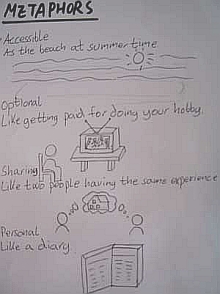 METAPHORS
Accessible
As the beach at summertime
Optional
Like getting paid for doing your hobby.
Sharing
Like two people having the same experience
Personal
Like a diary.